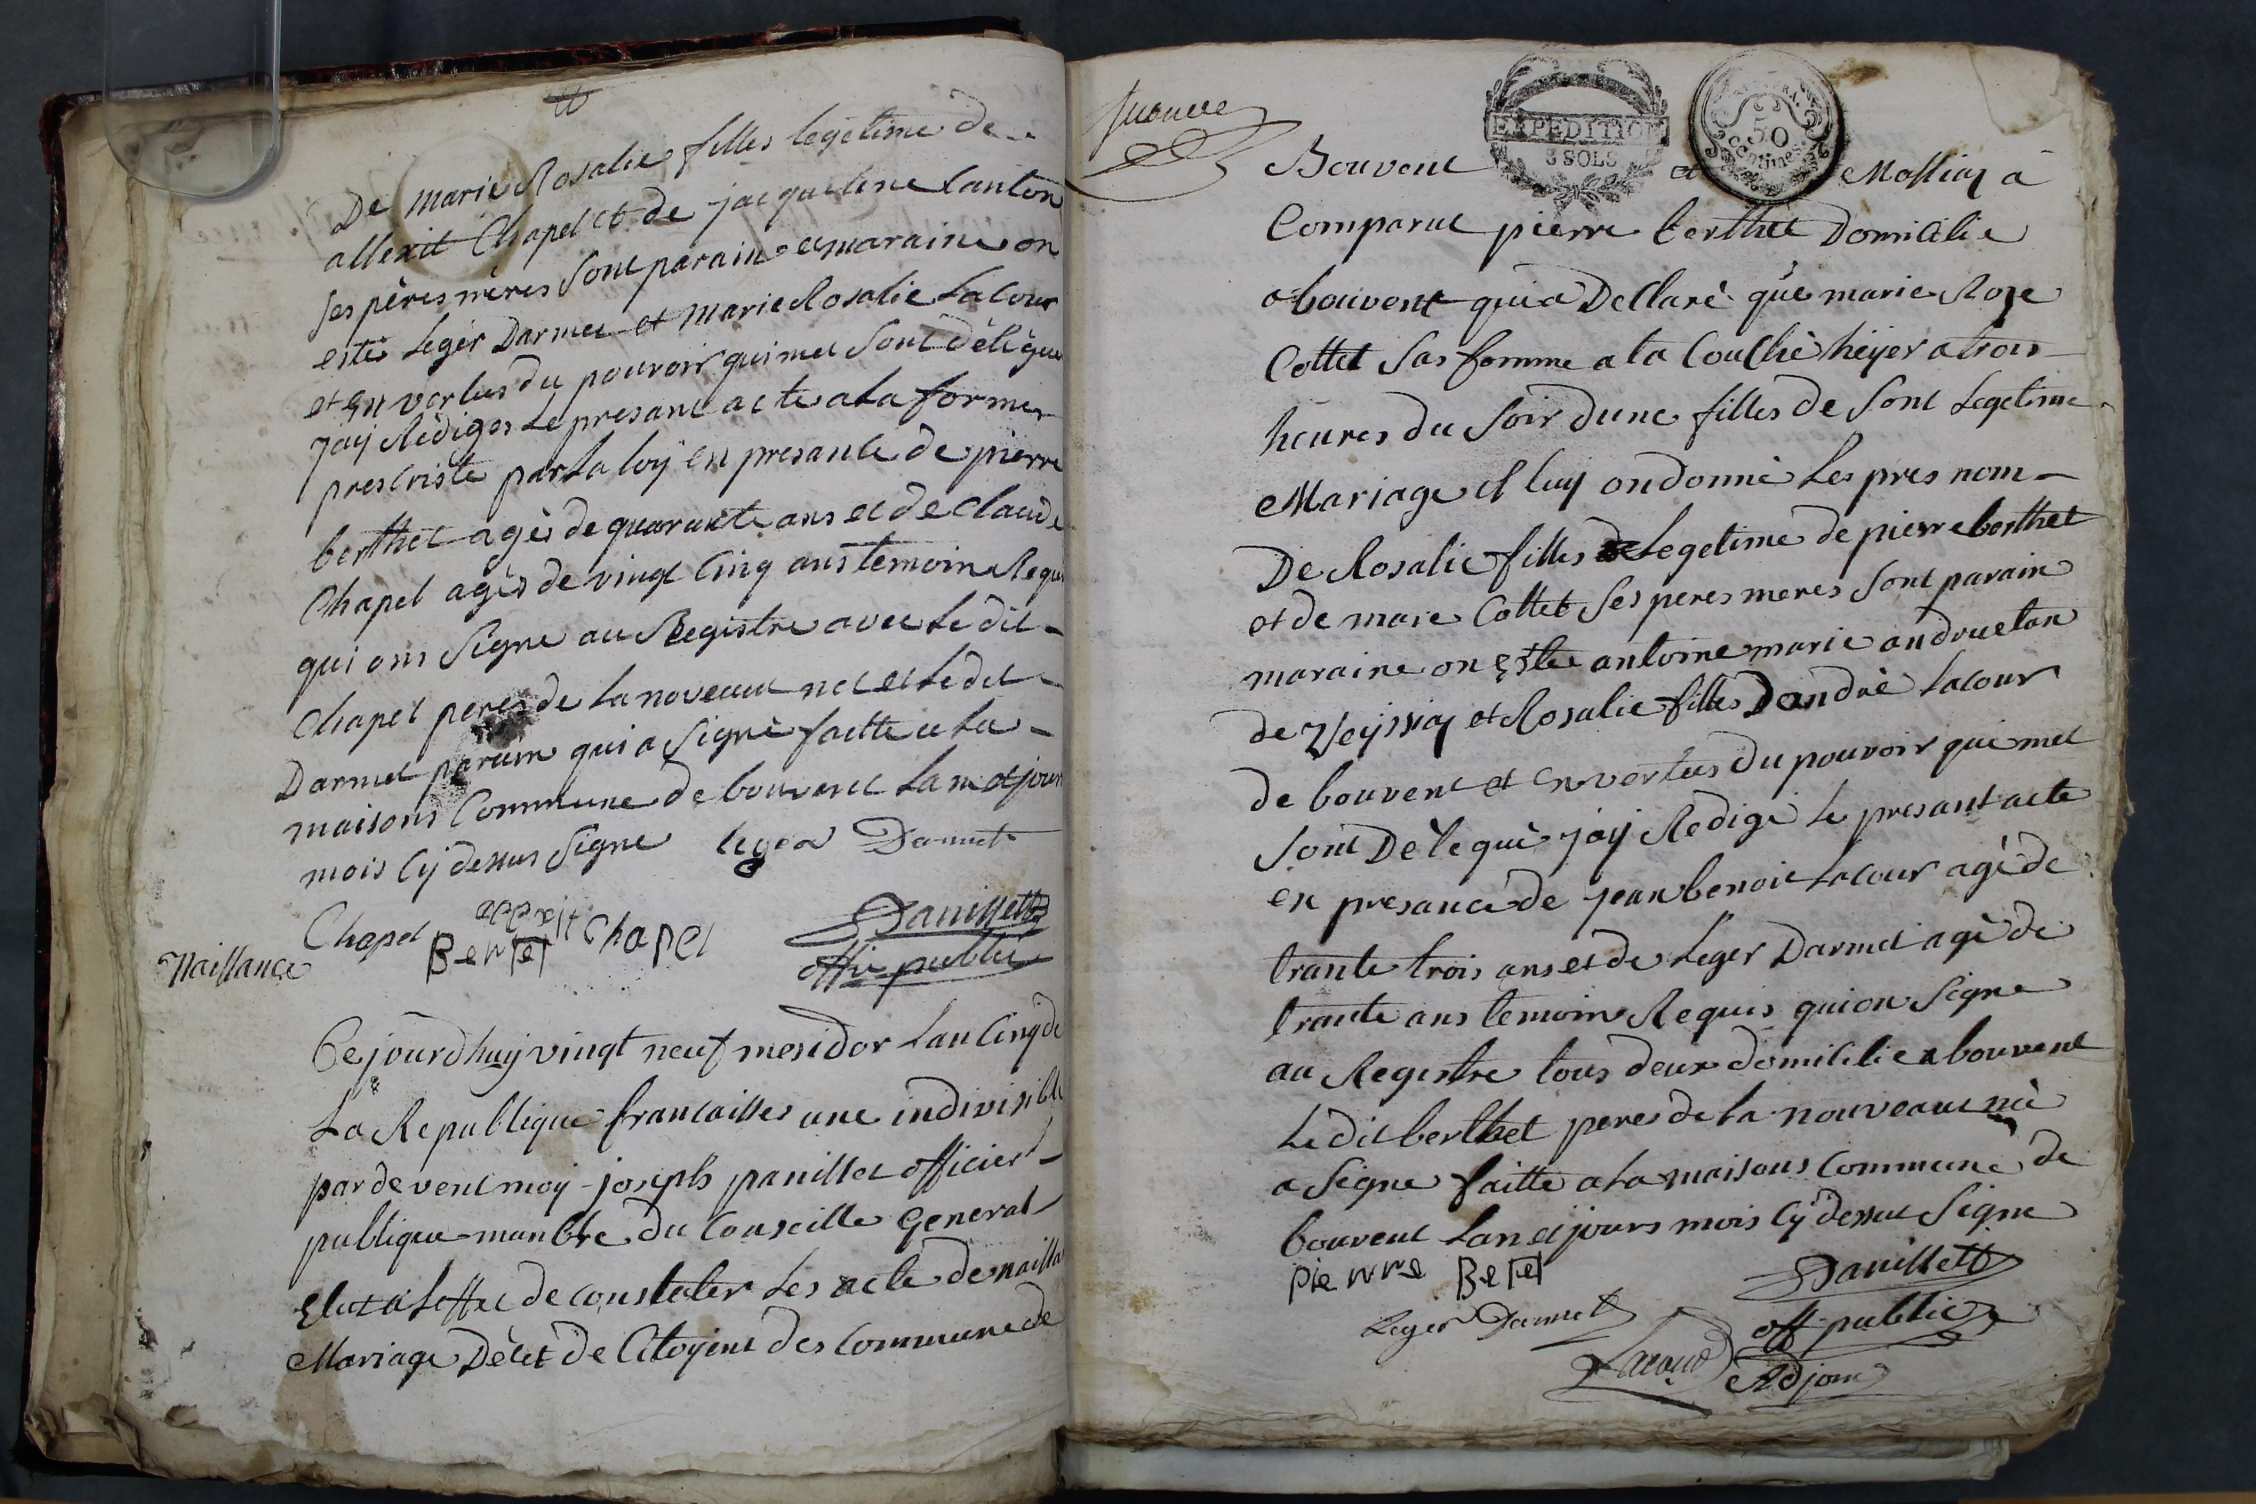 De marie Rosalie filles legetime de
allexit Chapel et de jacqueline lanton
ses pères mères sont parain e maraine on
estes leger Darmet et marie Rosalie Lacour
et En vertus du pouvoir qui met sont dèlègue
jay Rèdiger Le presant acte a la forme
prescriste par La loÿ En presante de pierre
berthet agès de quarante ans et de Claude
Chapel agès de vingt Cinq ans temoin Requi
qui ons signe au Registre avec Le dit
Chapel peres de la noveaux net et Le dit
Darmet parain qui a signè faitte a La
maisons Commune de bouvent Lan et jour
mois Cÿ dessus signe leger Darmet
Chapel
allexit Chapel
Bertet
Panillet
offi public
Naissance
Ce jourdhuÿ vingt neuf mesidor Lan Cinq de
La Republique francaisses une indivisible
par devent moÿ joseph panillet officier
publique manbre du Conseille General
Elut a Leffet de constater Les acte de naissa
Mariage Dècet de Citoÿent des Commune de
Bouvent et Massiaz a
EXPEDITION
3 SOLS
50
Centimes
Comparut pierre berthet Domicilie
a bouvent qui a Dellarè que marie Roze
Collet sas fomme a la Couchè hèÿer a trois
heures du soir dune filles de sont Legetime
Mariage il luy on donnè Les pres nom
De Rosalie filles Legetime de pierre berthet
et de marie Collet ses peres meres sont parain
maraine on Estee antoine marie andruetan
de Veÿssiaz et Rosalie filles Dandrè Lacour
de bouvent et En vertus du pouvoir qui met
sont Dèleguè jaÿ Redigè Le presant acte
en presance de jean benoit Lacour agè de
trante trois ans et de Leger Darmet agè de
trante ans temoin Requis qui on signe
au Registre tous deux domicilie a bouvent
Le dit berthet peres de la nouveaux nè
a signe faitte a La maisons Commune de
bouvent Lan et jours mois Cÿ dessut signe
pierre Betet
Panillet
Leger Darmet
off public
Lacour
Adjoin